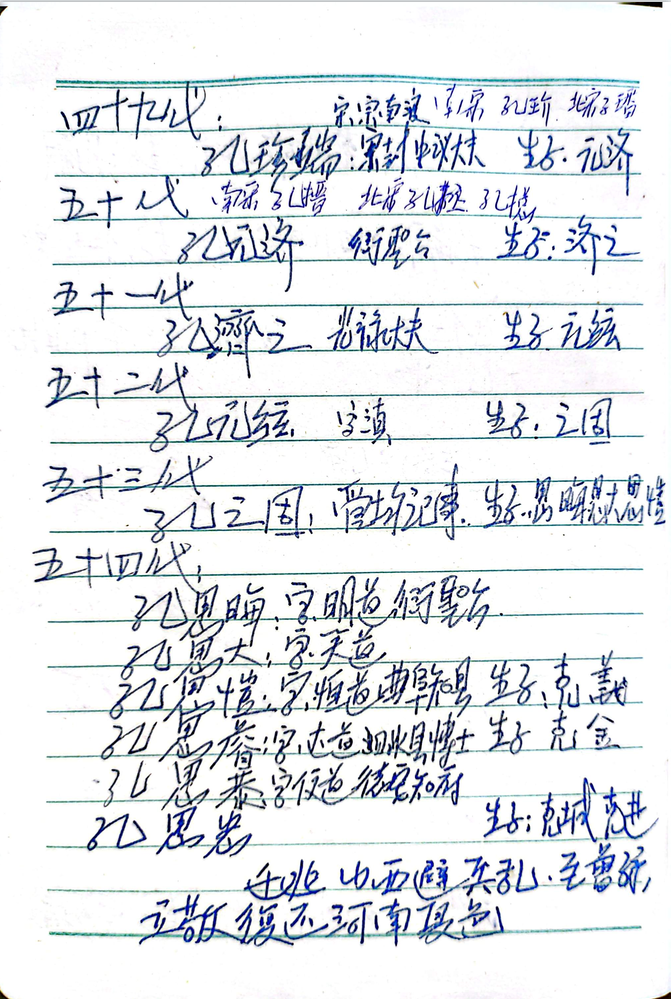 四十九代： 宗南渡 南宋 孔玠 北宋
孔珍端：宋封 大夫 生子.元济
五十代 南宋孔搢 北宋孔 孔摠
孔元济 衍圣公 生子：济之
五十一代
孔濟之 光禄大夫 生子.元绘
五十二代
孔元绘. 字滇 生子：之固
五十三代
孔之固：管 记事. 生子.思晦思大思愷
五十四代：
孔思晦：字.明道衍聖公.
孔思大：字.天道
孔思愷：字.恒道曲阜知县 生子：克義
孔思睿：字.达道泗水县博士 生子 克金
孔思恭：字便道 知府
孔思 生子：克城克进
迁逃山西避兵乱.至曾孫
立敬復还河南夏邑